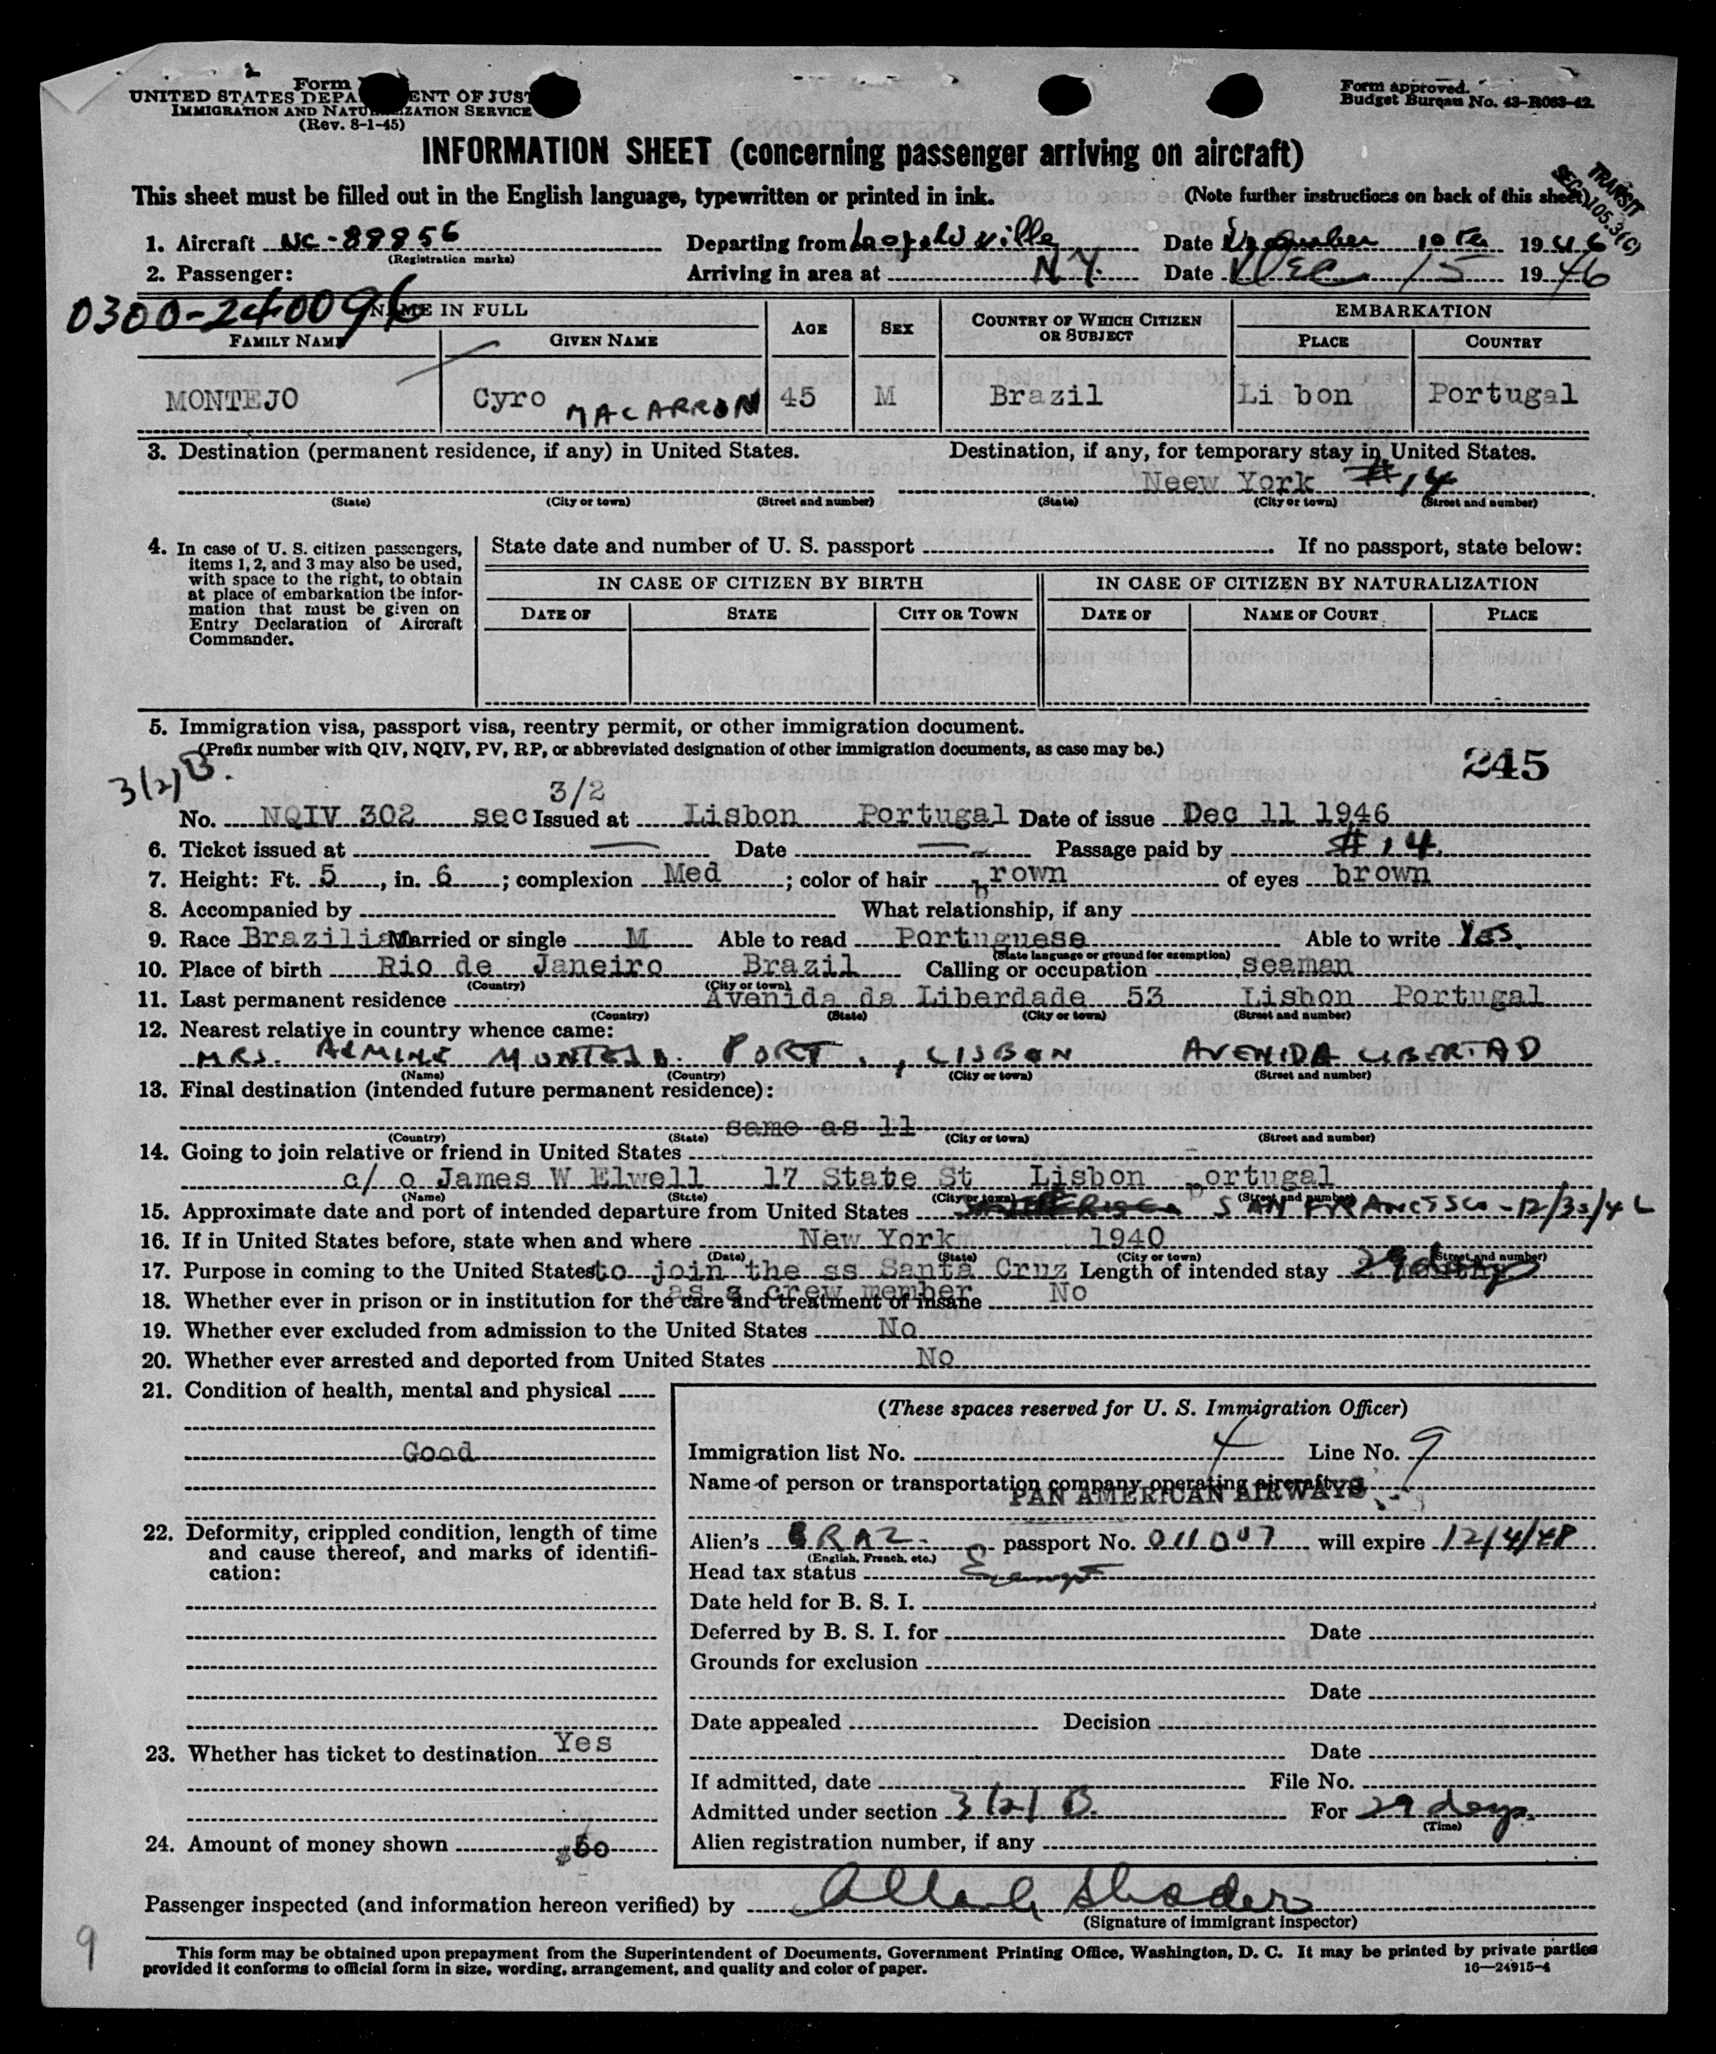 Form
UNITED STATES DEPA ENT OF JUST
IMMIGRATION AND NATU IZATION SERVICE
(Rev. 8-1-45)
Form approved.
Budget Bureau No. 43-R063-42.
INFORMATION SHEET (concerning passenger arriving on aircraft)
This sheet must be filled out in the English language, typewritten or printed in ink. (Note further instructions on back of this sheet)
TRANSIT
SEC. 105.3(C)
1. Aircraft NC-88856 Departing from Leopoldville Date December 10th 1946
(Registration marks)
2. Passenger: Arriving in area at N.Y. Date Dec 15 1946
0300-240096
NAME IN FULL AGE SEX COUNTRY OF WHICH CITIZEN OR SUBJECT EMBARKATION
FAMILY NAME GIVEN NAME PLACE COUNTRY
MONTEJO Cyro MACARRON 45 M Brazil Li bon Portugal
3. Destination (permanent residence, if any) in United States. Destination, if any, for temporary stay in United States.
Neew York #14
(State) (City or town) (Street and number) (State) (City or town) (Street and number)
4. In case of U. S. citizen passengers, items 1, 2, and 3 may also be used, with space to the right, to obtain at place of embarkation the information that must be given on Entry Declaration of Aircraft Commander.
State date and number of U. S. passport . If no passport, state below:
IN CASE OF CITIZEN BY BIRTH IN CASE OF CITIZEN BY NATURALIZATION
DATE OF STATE CITY OR TOWN DATE OF NAME OF COURT PLACE
5. Immigration visa, passport visa, reentry permit, or other immigration document.
(Prefix number with QIV, NQIV, PV, RP, or abbreviated designation of other immigration documents, as case may be.)
245
3(2)B.
3/2
No. NQIV 302 sec Issued at Lisbon Portugal Date of issue Dec 11 1946
6. Ticket issued at — Date — Passage paid by #14.
7. Height: Ft. 5, in. 6; complexion Med; color of hair brown of eyes brown
8. Accompanied by What relationship, if any
9. Race Brazilian Married or single M Able to read Portuguese Able to write Yes
(State language or ground for exemption)
10. Place of birth Rio de Janeiro Brazil Calling or occupation seaman
(Country) (City or town)
11. Last permanent residence Avenida da Liberdade 53 Lisbon Portugal
(Country) (State) (City or town) (Street and number)
12. Nearest relative in country whence came:
MRS. MONTEJO. PORT., LISBON AVENIDA LIBERTAD
(Name) (Country) (City or town) (Street and number)
13. Final destination (intended future permanent residence):
same as 11
(Country) (State) (City or town) (Street and number)
14. Going to join relative or friend in United States
c/ o James W Elwell 17 State St Lisbon portugal
(Name) (State) (City or town) (Street and number)
15. Approximate date and port of intended departure from United States SAN FRANCISCO - 12/30/46
16. If in United States before, state when and where New York 1940
(Date) (State) (City or town) (Street and number)
17. Purpose in coming to the United States to join the ss Santa Cruz Length of intended stay 29 days
as a crew member
18. Whether ever in prison or in institution for the care and treatment of insane No
19. Whether ever excluded from admission to the United States No
20. Whether ever arrested and deported from United States No
21. Condition of health, mental and physical
Good
22. Deformity, crippled condition, length of time and cause thereof, and marks of identification:
23. Whether has ticket to destination Yes
24. Amount of money shown $50
(These spaces reserved for U. S. Immigration Officer)
Immigration list No. 4 Line No. 9
Name of person or transportation company operating aircraft
PAN AMERICAN AIRWAYS
Alien's BRAZ. passport No. 011007 will expire 12/4/48
(English, French, etc.)
Head tax status Exempt
Date held for B. S. I.
Deferred by B. S. I. for Date
Grounds for exclusion
Date
Date appealed Decision
Date
If admitted, date File No.
Admitted under section 3(2) B. For 29 days.
(Time)
Alien registration number, if any
Passenger inspected (and information hereon verified) by
(Signature of immigrant inspector)
9
This form may be obtained upon prepayment from the Superintendent of Documents, Government Printing Office, Washington, D. C. It may be printed by private parties
provided it conforms to official form in size, wording, arrangement, and quality and color of paper.
16—24915-4